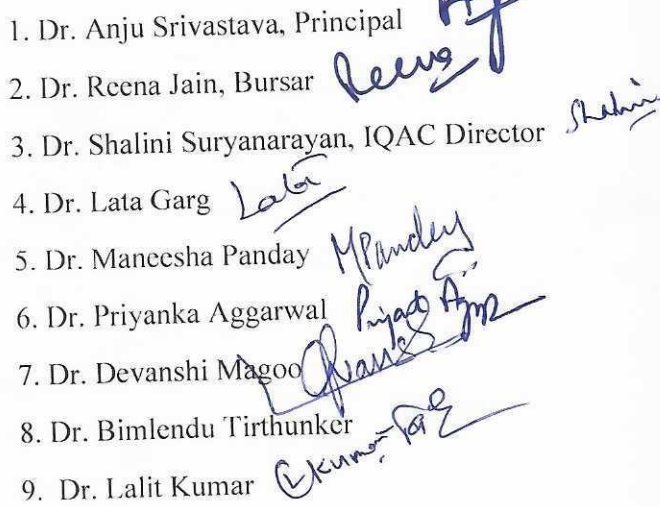 1. Dr. Anju Srivastava, Principal
2. Dr. Reena Jain, Bursar Reena
3. Dr. Shalini Suryanarayan, IQAC Director Shalini
4. Dr. Lata Garg Lata
5. Dr. Maneesha Panday MPandey
6. Dr. Priyanka Aggarwal
7. Dr. Devanshi Magoo
8. Dr. Bimlendu Tirthunker
9. Dr. Lalit Kumar